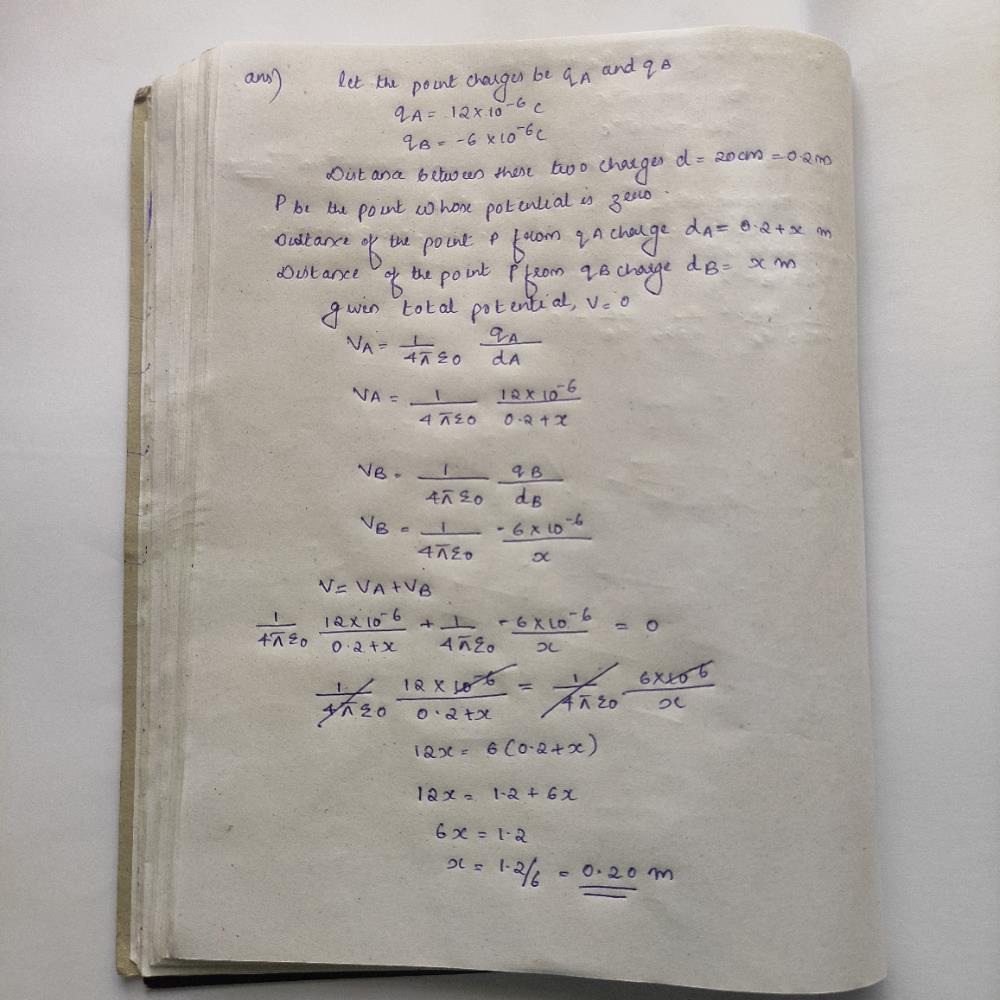 ans) let the point charges be qA and qB
qA = 12×10⁻⁶ C
qB = -6×10⁻⁶C
Distance between these two charges d = 20cm = 0.2m
P be the point whose potential is zero.
Distance of the point P from qA charge dA = 0.2+x m
Distance of the point P from qB charge dB = x m
given total potential, V=0
VA = 1/4πε0 qA/dA
VA = 1/4πε0 12×10⁻⁶/0.2+x
VB = 1/4πε0 qB/dB
VB = 1/4πε0 -6×10⁻⁶/x
V= VA+VB
1/4πε0 12×10⁻⁶/0.2+x + 1/4πε0 -6×10⁻⁶/x = 0
1/4πε0 12×10⁻⁶/0.2+x = 1/4πε0 6×10⁻⁶/x
12x = 6(0.2+x)
12x = 1.2+6x
6x = 1.2
x = 1.2/6 = 0.20 m